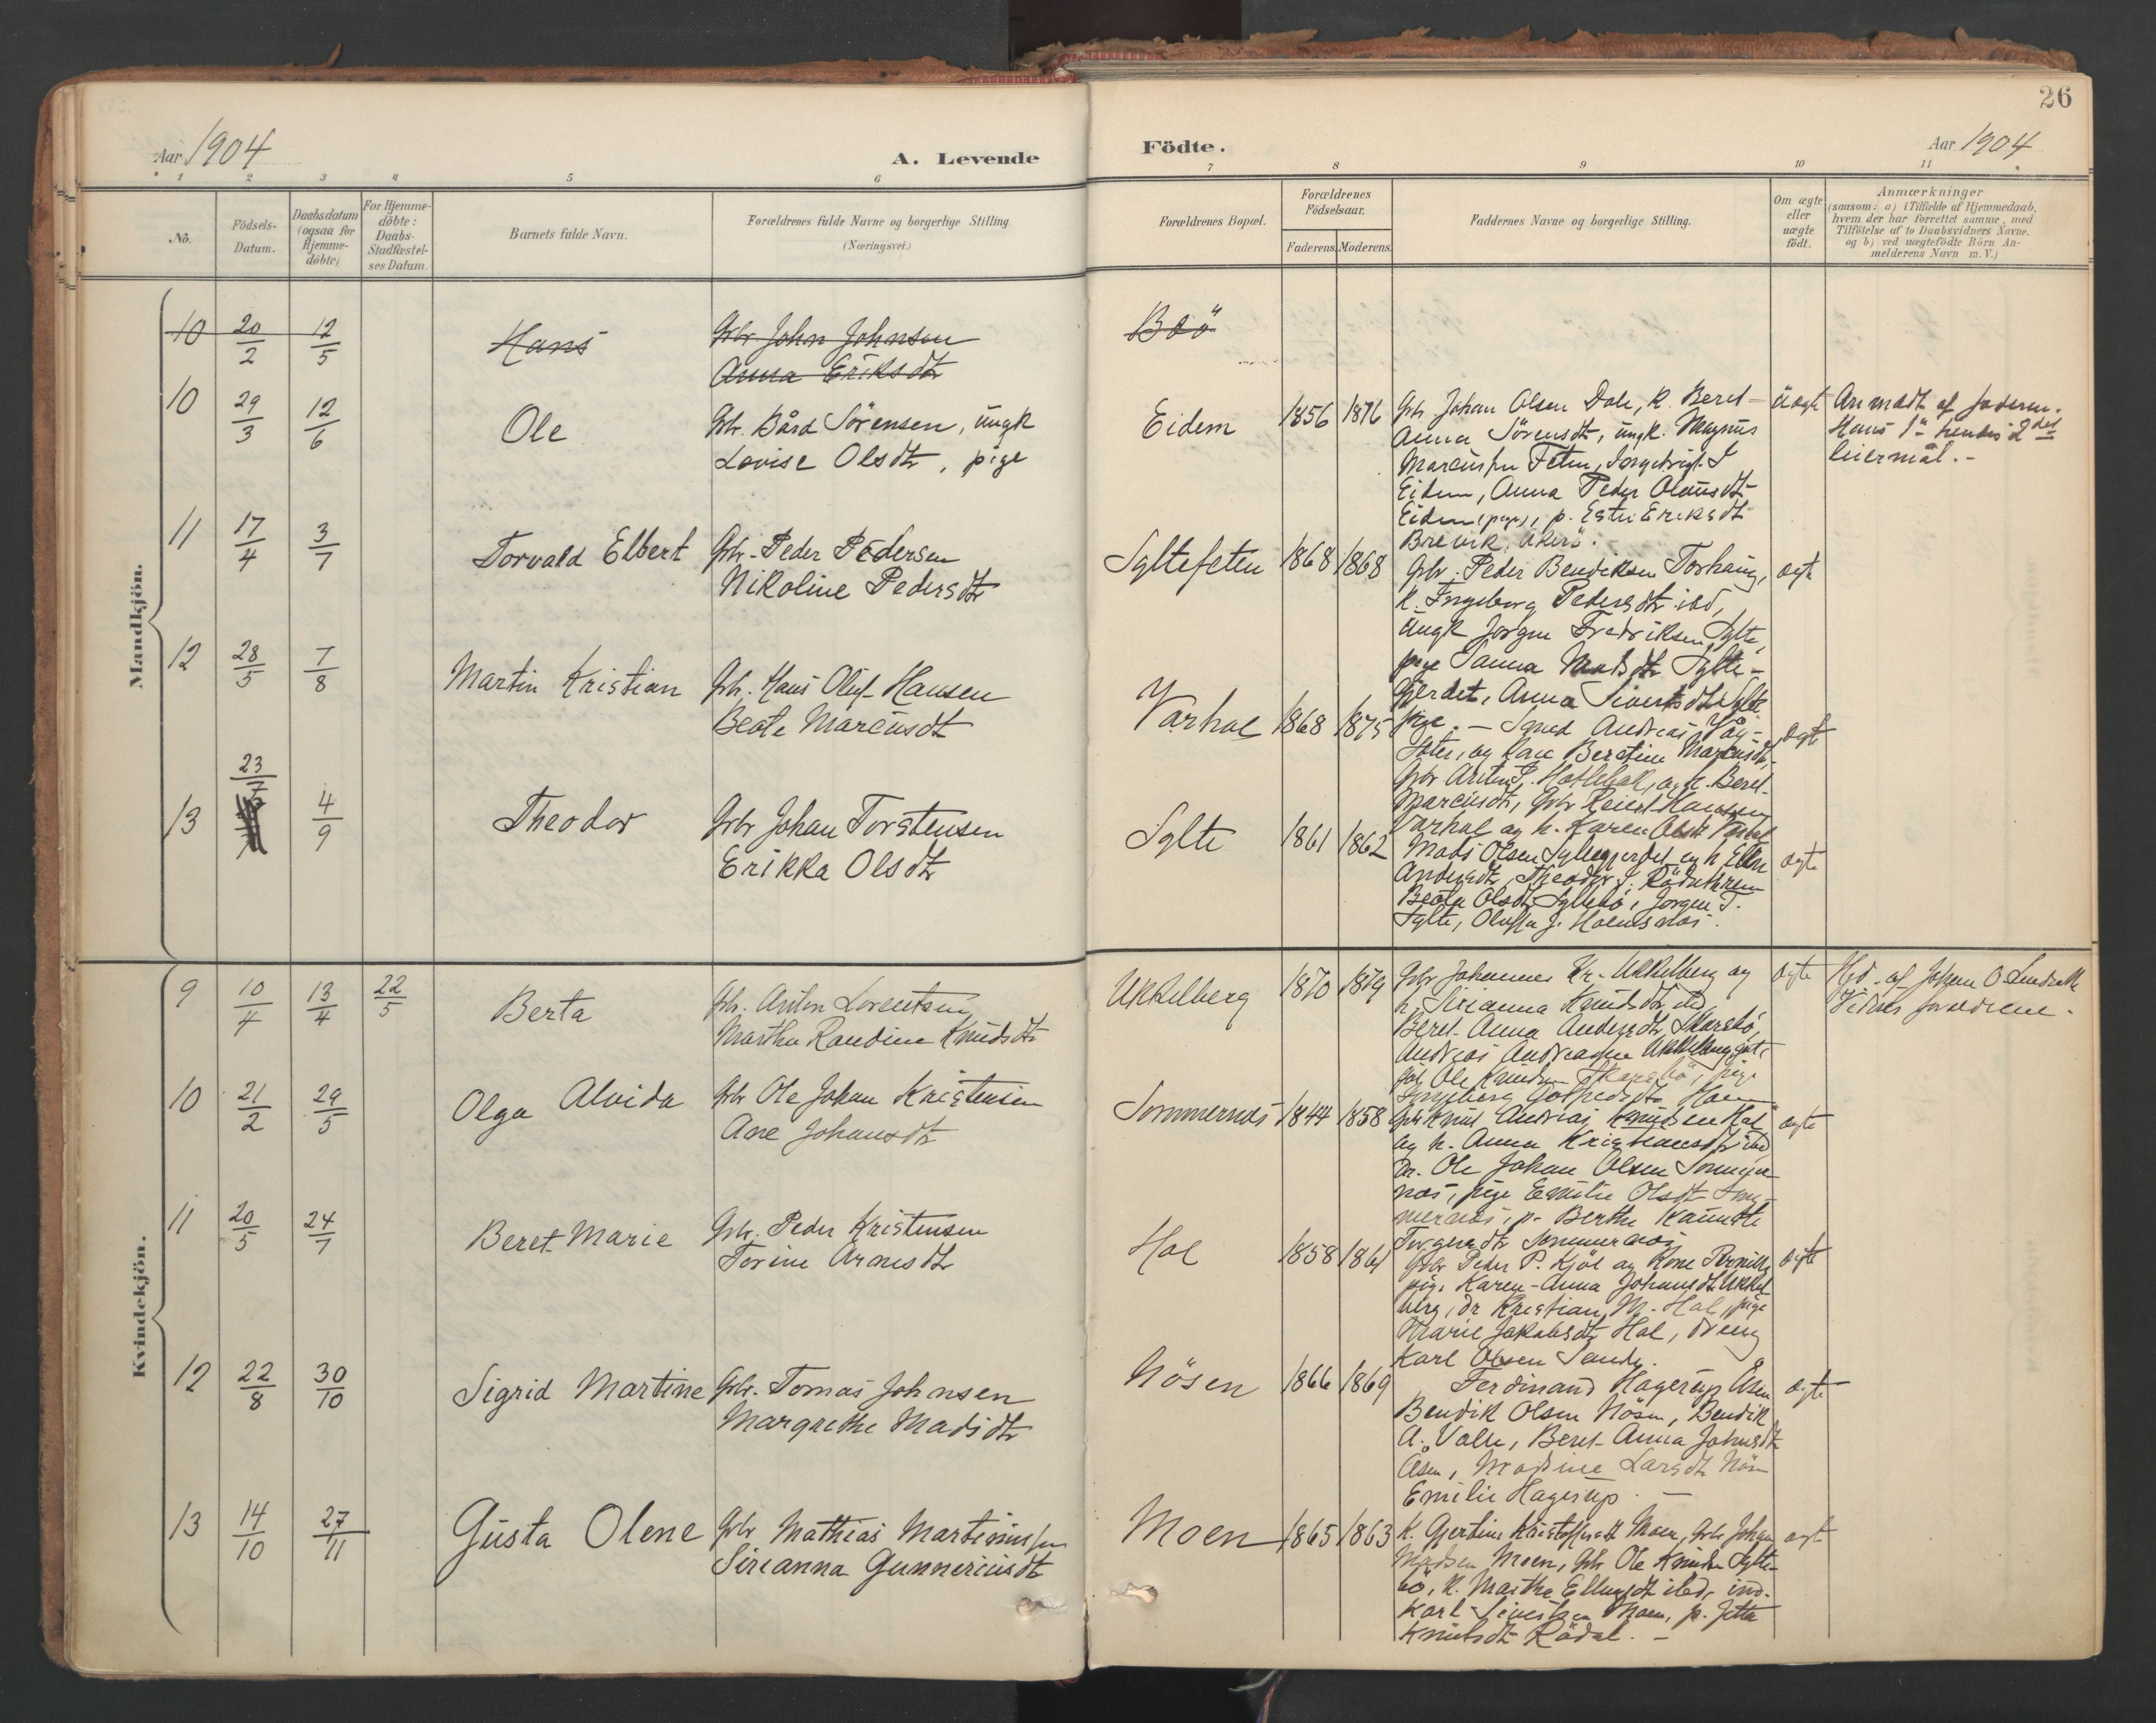 26
Aar 1904
A. Levende
Födte.
Aar 1904
1 2 3 4 5 6 7 8 9 10 11
No.
Födsels-
Datum.
Daabsdatum
(ogsaa for
Hjemme-
döbte)
For Hjemme-
döbte:
Daabs-
Stadfæstel-
ses Datum.
Barnets fulde Navn.
Forældrenes fulde Navne og borgerlige Stilling
(Næringsvei.)
Forældrenes Bopæl.
Forældrenes
Födselsaar.
Faderens. Moderens.
Faddernes Navne og borgerlige Stilling.
Om ægte
eller
uægte
födt.
Anmærkninger
(saasom: a) i Tilfælde af Hjemmedaab,
hvem der har forrettet samme, med
Tilföielse af to Daabsvidners Navne.
og b) ved uægtefödte Börn An-
melderens Navn m. V.)
Mandkjön.
10 20/2 12/5 Hans Gbr. John Johnsen
Anna Eriksdtr
Boö
10 29/3 12/6 Ole Gbr. Bård Sörensen, ungk
Lovise Olsdtr, pige
Eidem 1856 1876
Gbr. Johan Olsen Dale, k. Beret-
Anna Sörensdtr, ungk. Magnus
Eidem, Anna Peder Olausdtr
Eidem (pige), p. Eriksdtr
Brevik, Akerö.
uægte
Anmeldt af faderen.
Hans 1ste hendes 2det
leiermål.-
11 17/4 3/7 Torvald Elbert Gbr. Peder Pedersen
Nikoline Pedersdtr
Syltefeten 1868 1868
Gbr. Peder Bendiksen Torhaug,
k. Ingeborg Pedersdtr ibd,
ungk Jörgen Fredriksen Sylte,
pige Madsdtr Sylte-
gjerdet, Anna Sivertsdtr Sylte
pige.-
ægte
12 28/5 7/8 Martin Kristian Gbr. Hans Oluf Hansen
Beate Marcusdtr
Varhol 1868 1875
Smed Andreas Våg-
og kone Beratine Marcusdtr,
Marcusdtr, Gbr
Varhol og k. Karen Olsdtr
ægte
13 23/7 4/9 Theodor Gbr Johan Torstensen
Erikka Olsdtr
Sylte 1861 1862
Mads Olsen Syltegjerdet og k Ellen
Andersdtr, Theodor J.
Beata Olsdtr Syltebö, Jörgen T.
Sylte, J. Holmsnæs.
ægte
Kvindekjön.
9 10/4 13/4 22/5 Berta Gbr. Anton Lorentsen
Martha Randine Knudsdtr
Ukkelberg 1870 1879
Gbr Johannes Kr. Ukkelberg og
k, Sirianna Knudsdtr ibd,
Beret-Anna Andersdtr Skarsbö,
Andreas Andreasen Ukkelberg
Ole Knudsen Skarsbö, pige
Ingeborg
ægte
Hjd. af Johan O
Vidner forældrene.
10 21/2 29/5 Olga Alvida Gbr Ole Johan Kristensen
Ane Johansdtr
Sommernæs 1844 1858
Gbr Knud Andreas Knudsen Hol
og k. Anna Kristiansdtr ibd
Dr. Ole Johan Olsen Sommer-
næs, pige Emilie Olsdtr Som-
mernæs, p. Berthe
Sommernæs
ægte
11 20/5 24/7 Beret-Marie Gbr. Peder Kristensen
Torine Arnesdtr
Hol 1858 1861
Gbr Peder P. Kjöl og kone Pernille,
pige Karen-Anna Johansdtr Ukkel-
berg, dr Kristian M. Hol, pige
Marie Jakobsdtr Hol, dreng
Karl Olsen Sande.
ægte
12 22/8 30/10 Sigrid Martine Gbr. Tomas Johnsen
Margrethe Madsdtr
Nösen 1866 1869
Ferdinand Hagerup Åsen
Bendik Olsen Nösen, Bendik
A. Valle, Beret-Anna Johnsdtr
Åsen, Madsine Larsdtr Nösen
Emilie Hagerup.-
ægte
13 14/10 27/11 Gusta Olene Gbr Mathias Martinussen
Sirianna Gunneriusdtr
Moen 1865 1863
k. Gjertine Kristoffersdtr Moen, Gbr Johan
Madsen Moen, Gbr Ole Knudsen Sylte-
bö, k. Martha Ellingsdtr ibd, ind.
Karl Sivertsen Moen, p. Jetta
Knutsdtr Rödal.-
ægt